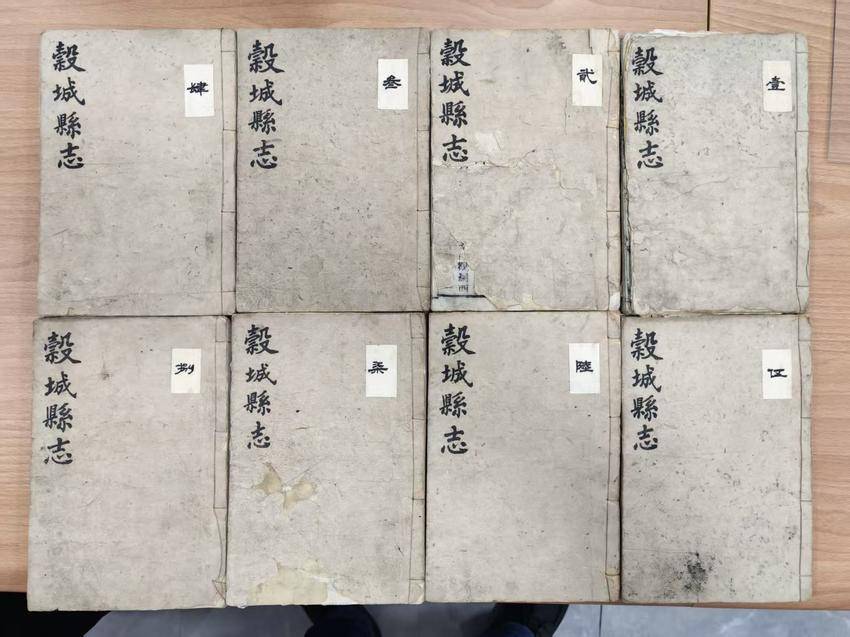 穀城縣志
壹
穀城縣志
貳
穀城縣志
叁
穀城縣志
肆
穀城縣志
伍
穀城縣志
陸
穀城縣志
柒
穀城縣志
捌